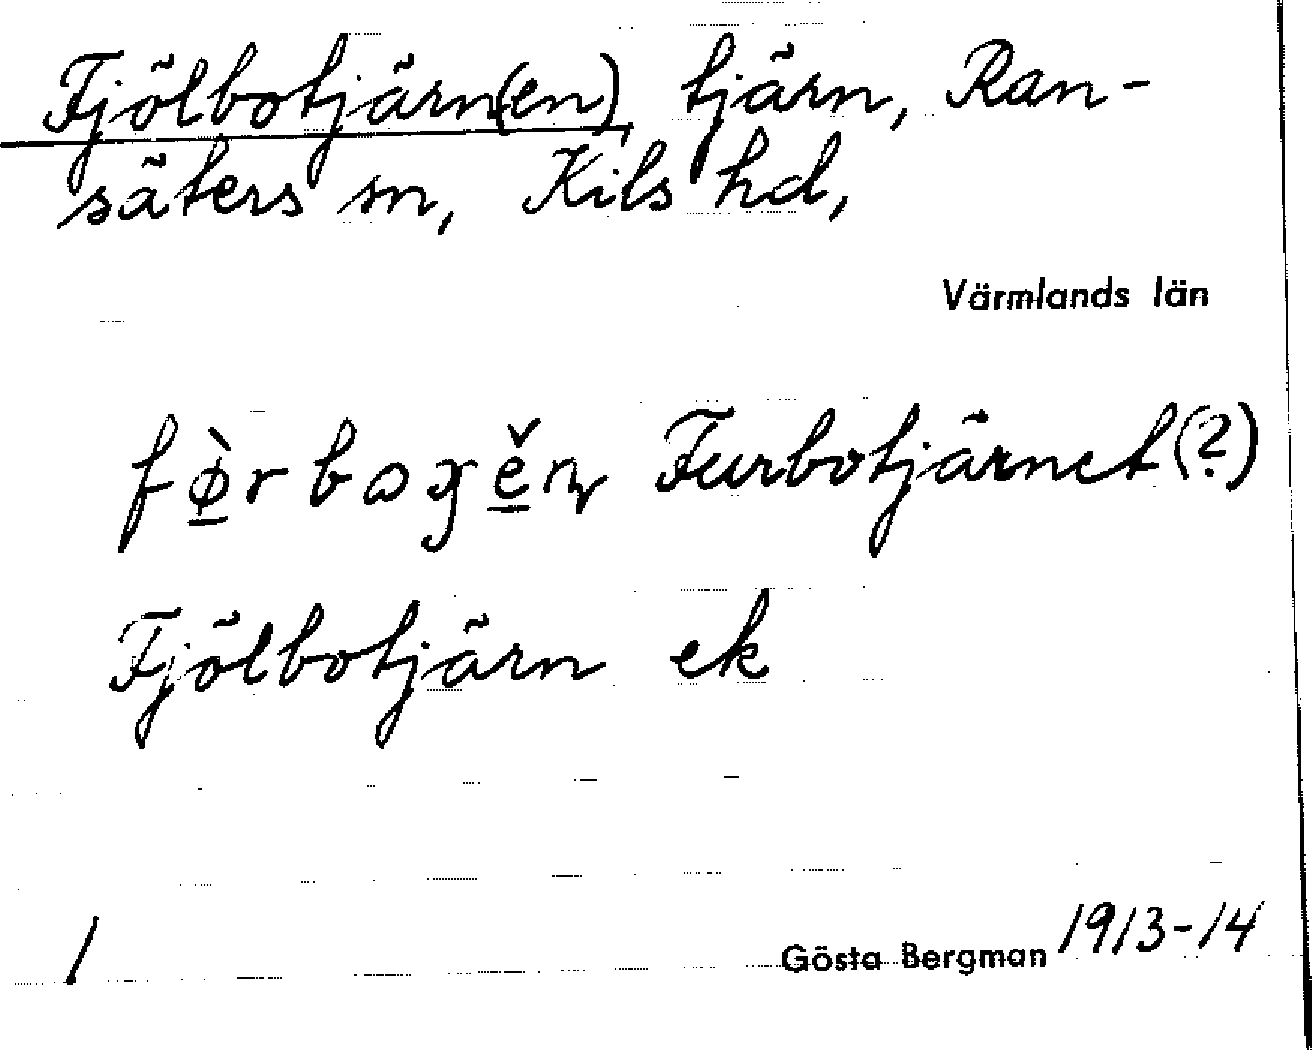 Fjölbotjärn(en), tjärn, Ran-
säters sn, Kils hd,
Värmlands län
Furbotjärnet(?)
Fjölbotjärn ek
1
Gösta Bergman 1913-14